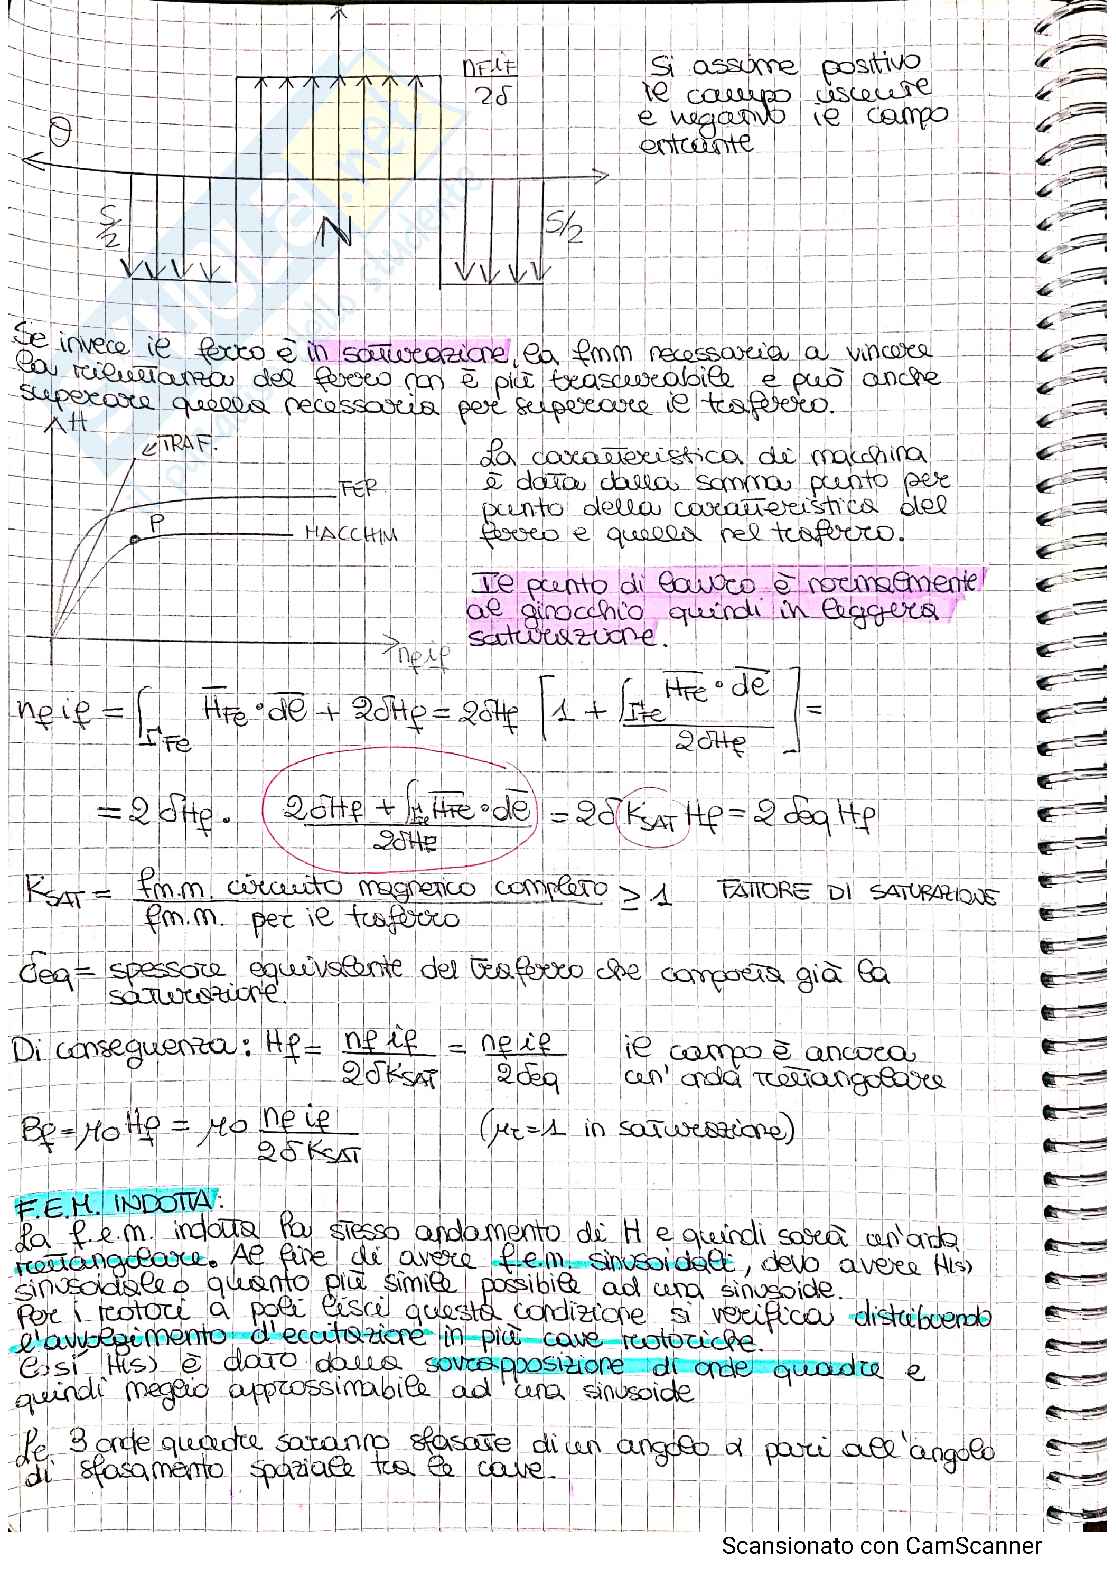 nf if
2δ
Si assume positivo
il campo uscente
e negativo il campo
entrante
θ
S/2
N
S/2
Se invece il ferro è in saturazione, la fmm necessaria a vincere
la riluttanza del ferro non è più trascurabile e può anche
superare quella necessaria per superare il traferro.
H
TRAF.
FER
P
MACCHIM
nf if
La caratteristica di macchina
è data dalla somma punto per
punto della caratteristica del
ferro e quella nel traferro.
Il punto di lavoro è normalmente
al ginocchio quindi in leggera
saturazione.
nf if = ∫ΓFe H̅Fe · d̅l̅ + 2δHf = 2δHf [1 + ∫ΓFe H̅Fe · d̅l̅ / 2δHf] =
= 2δHf · (2δHf + ∫ΓFe H̅Fe · d̅l̅) / 2δHf = 2δ KSAT Hf = 2 δeq Hf
KSAT = fm.m. circuito magnetico completo / fm.m. per il traferro ≥ 1 FATTORE DI SATURAZIONE
δeq = spessore equivalente del traferro che comporta già la
saturazione.
Di conseguenza: Hf = nf if / 2δKSAT = nf if / 2δeq il campo è ancora
un'onda rettangolare
Bf = μ0 Hf = μ0 nf if / 2δKSAT (μr=1 in saturazione)
F.E.M. INDOTTA:
La f.e.m. indotta ha stesso andamento di H e quindi sarà un'onda
rettangolare. Al fine di avere f.e.m. sinusoidali, devo avere H(s)
sinusoidale o quanto più simile possibile ad una sinusoide.
Per i rotori a poli lisci questa condizione si verifica distribuendo
l'avvolgimento d'eccitazione in più cave rotoriche.
Così H(s) è dato dalla sovrapposizione di onde quadre e
quindi meglio approssimabile ad una sinusoide
Le 3 onde quadre saranno sfasate di un angolo α pari all'angolo
di sfasamento spaziale tra le cave.
Scansionato con CamScanner